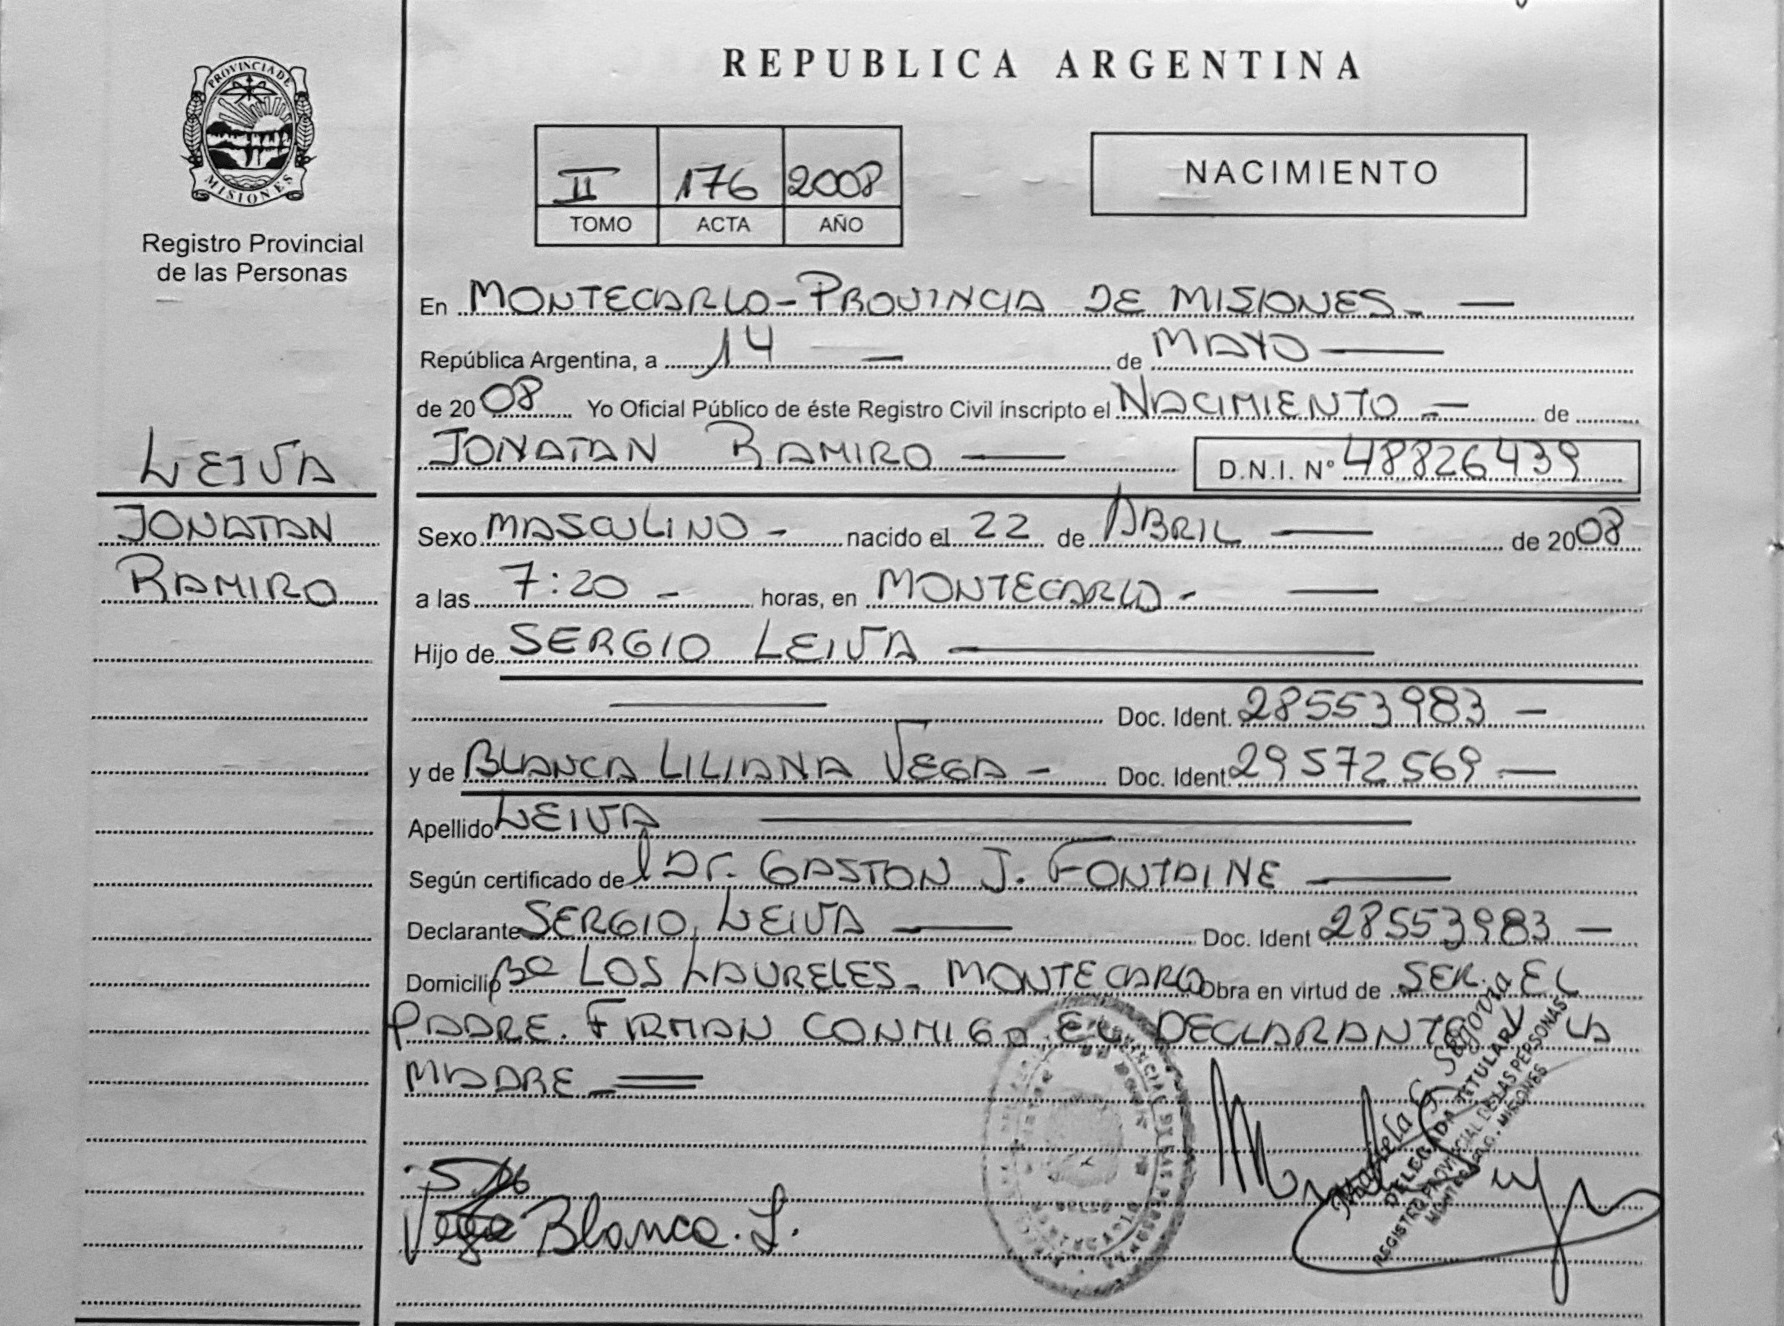 REPUBLICA ARGENTINA
PROVINCIA DE
MISIONES
Registro Provincial
de las Personas
II 176 2008
TOMO ACTA AÑO
NACIMIENTO
En MONTECARLO - PROVINCIA DE MISIONES. —
República Argentina, a 14 — de MAYO —
de 2008 Yo Oficial Público de éste Registro Civil inscripto el NACIMIENTO — de
JONATAN RAMIRO — D.N.I. Nº 48826439
LEIVA
JONATAN
RAMIRO
Sexo MASCULINO - nacido el 22 de ABRIL — de 2008
a las 7:20 - horas, en MONTECARLO - —
Hijo de SERGIO LEIVA —
— Doc. Ident. 28553983 —
y de BLANCA LILIANA VEGA - Doc. Ident. 29572569 —
Apellido LEIVA —
Según certificado del Dr. GASTON J. FONTAINE —
Declarante SERGIO LEIVA — Doc. Ident 28553983 —
Domicilio Bº LOS LAURELES - MONTECARLO Obra en virtud de SER EL
PADRE. FIRMAN CONMIGO EL DECLARANTE Y LA
MADRE =
Vega Blanca. L.
Segovia
DELEGADA TITULAR
REGISTRO PROVINCIAL DE LAS PERSONAS
MONTECARLO - MISIONES